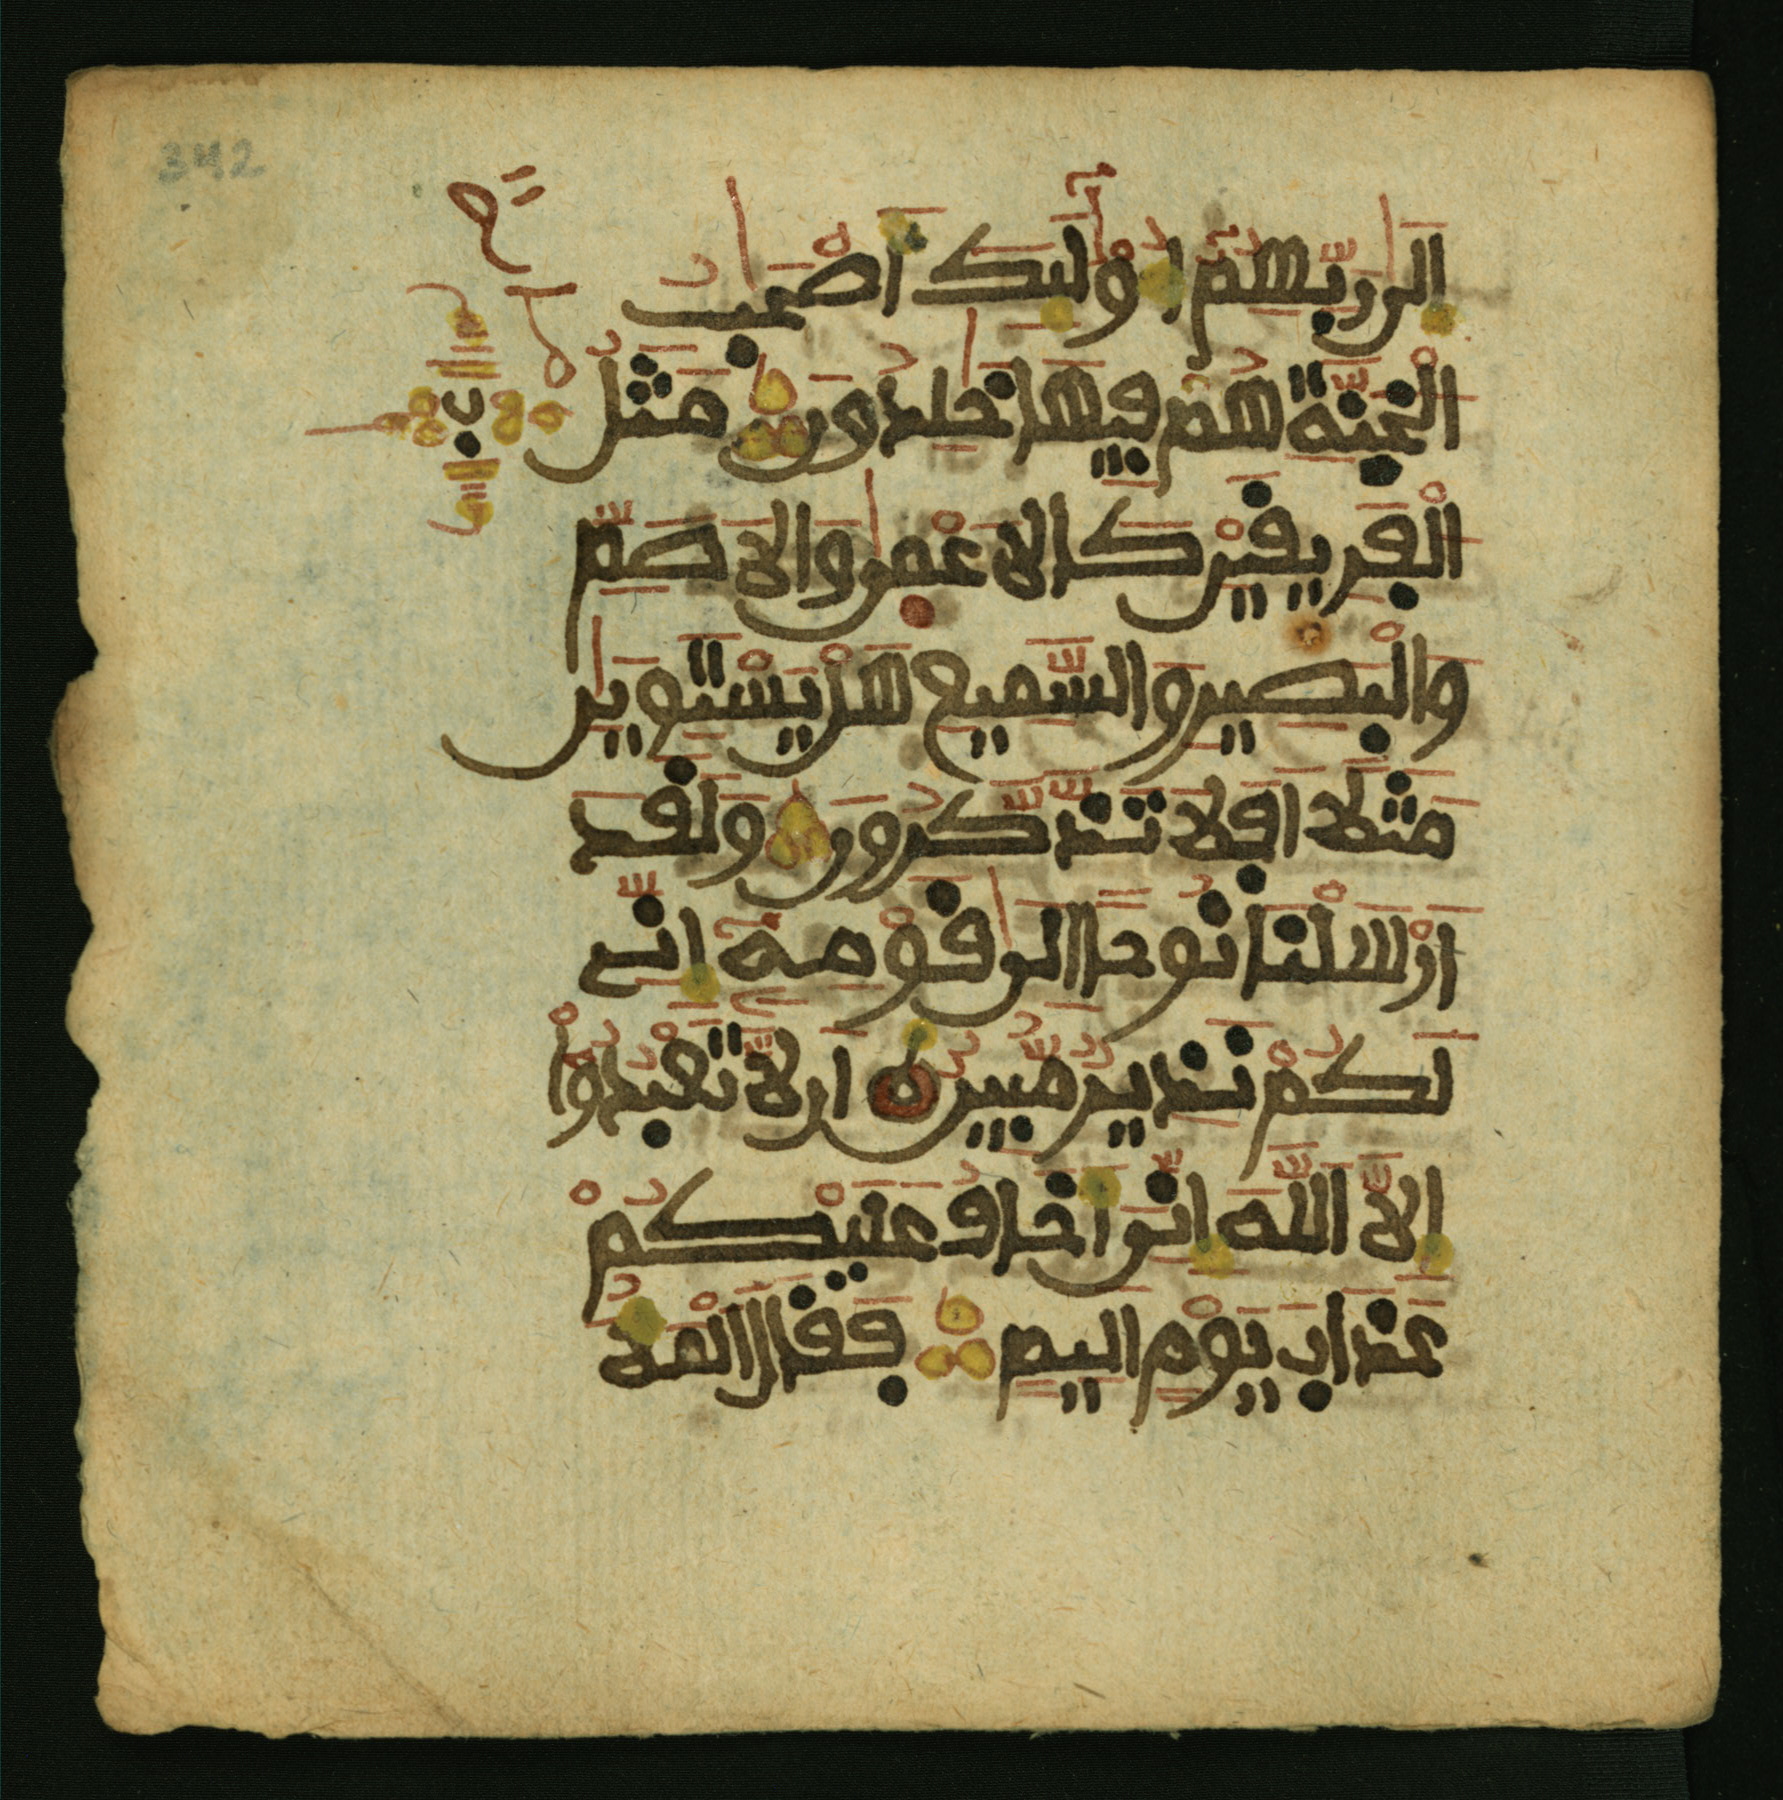 342
الى ربهم اوليك اصحب
الجنة هم فيها خلدون مثل
الفريقين كالاعمى والاصم
والبصير والسميع هل يستوين
مثلا افلا تذكرون ولقد
ارسلنا نوحا الى قومه انى
لكم نذير مبين ان لا تعبدوا
الا الله انى اخاف عليكم
عذاب يوم اليم فقال الملا